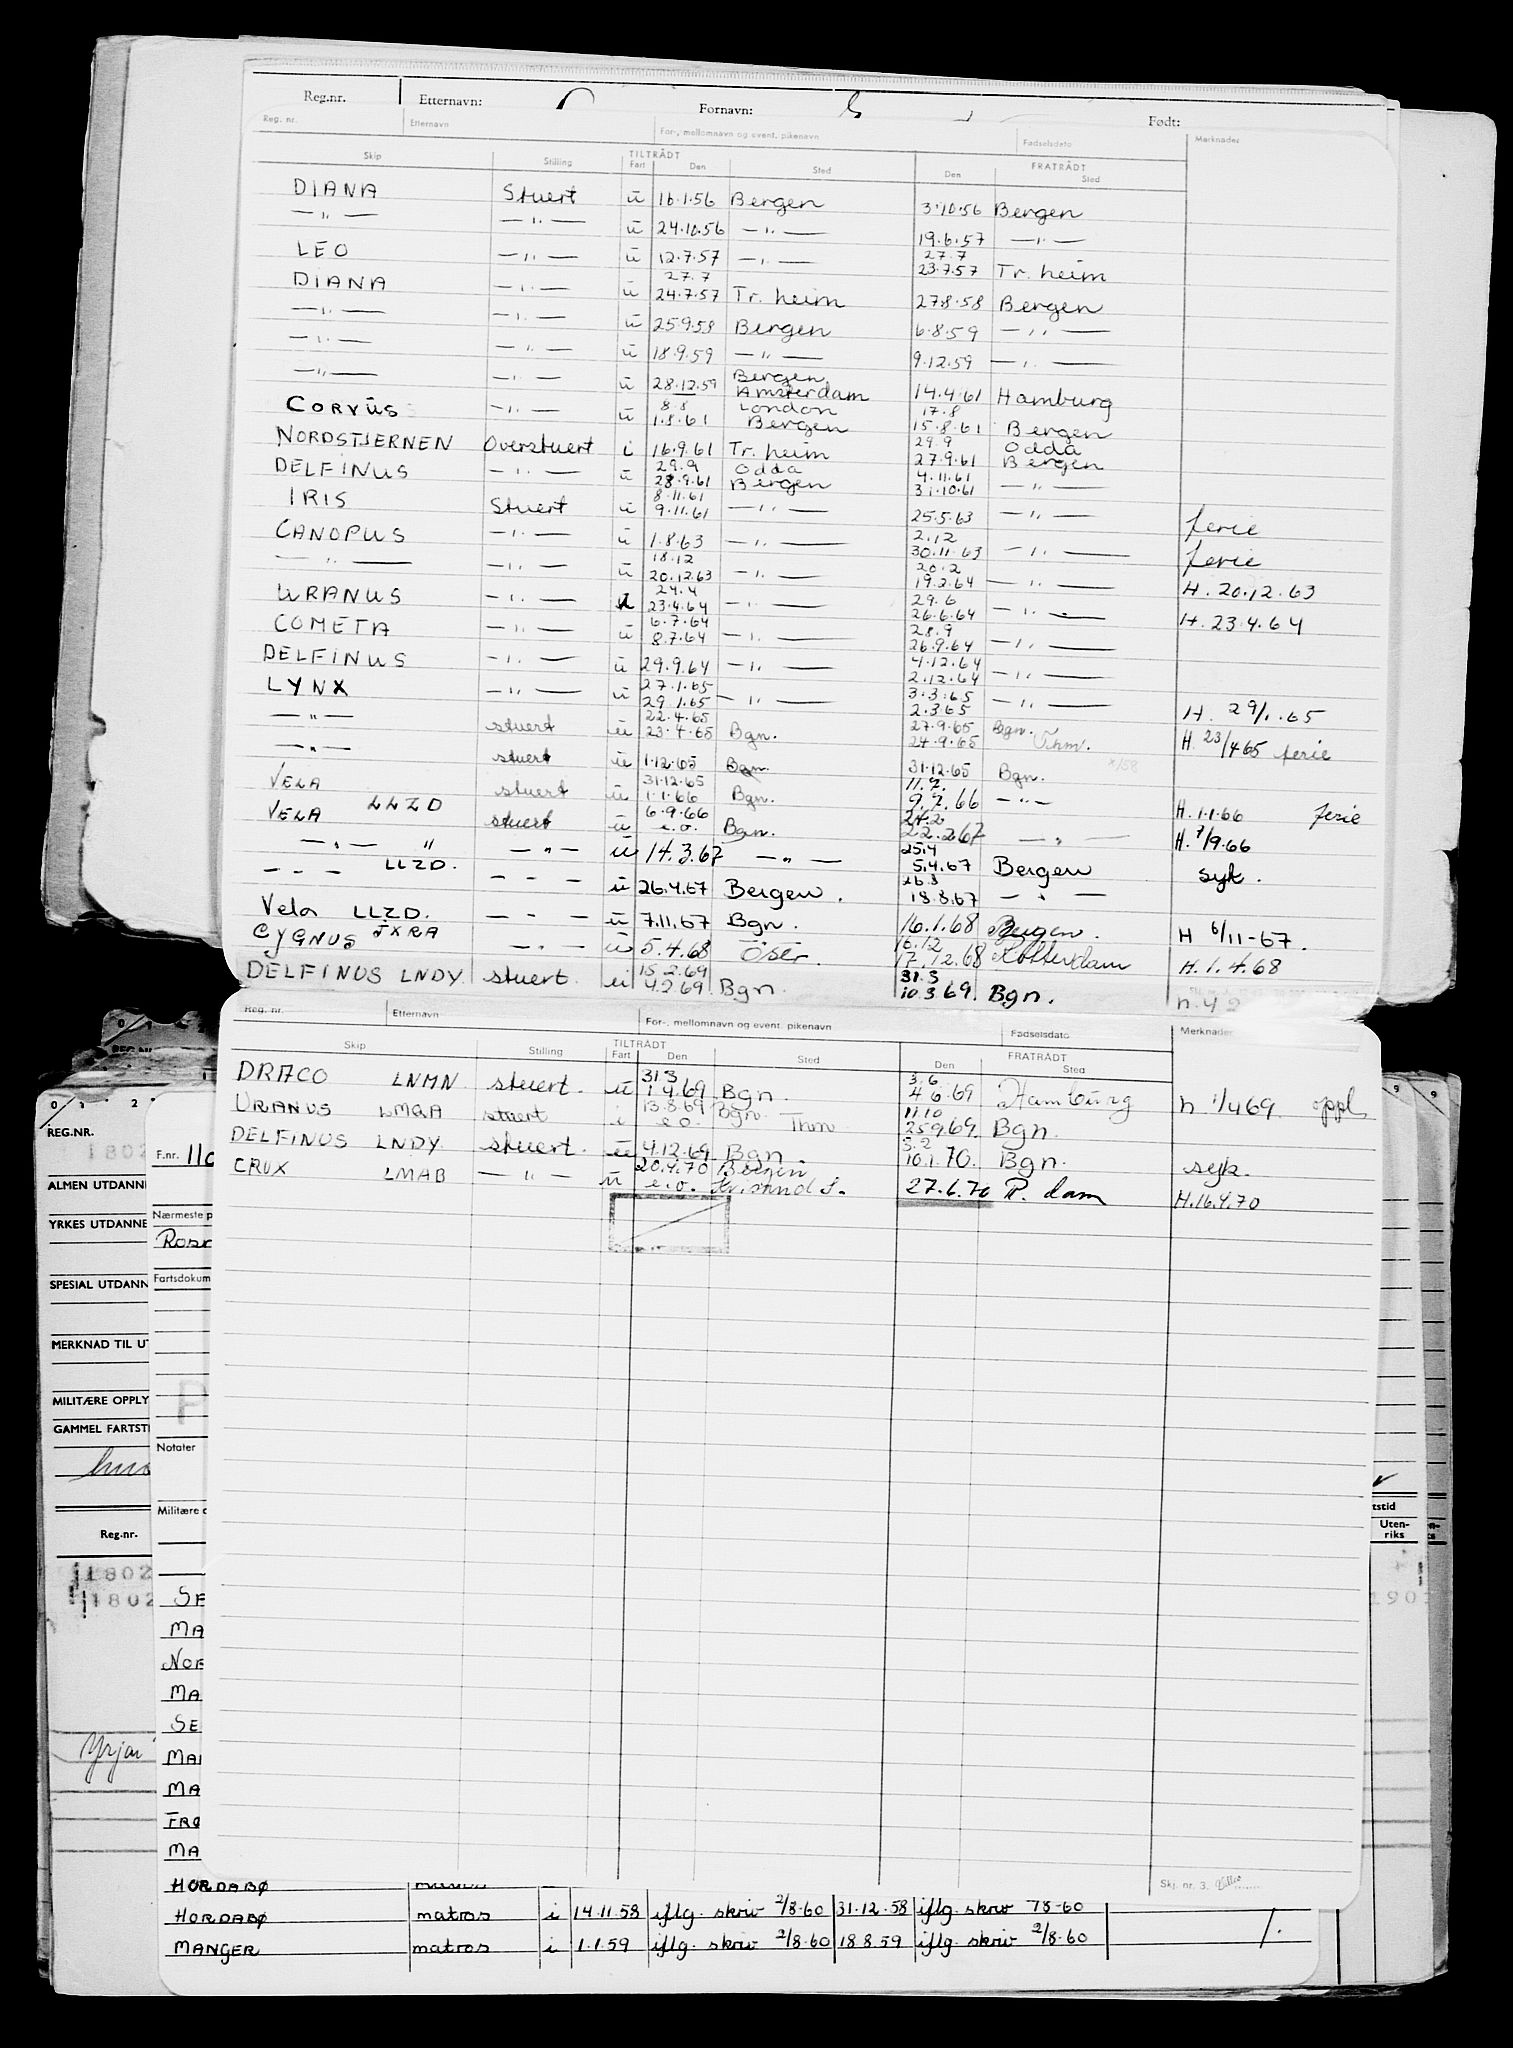 Reg.nr. Etternavn: Fornavn: Født:
Reg. nr. Etternavn For-, mellomnavn og event. pikenavn Fødselsdato Merknader
Skip Stilling TILTRÅDT Fart Den Sted FRATRÅDT Den Sted
DIANA Stuert ü 16.1.56 Bergen 3.10.56 Bergen
—"— —"— ü 24.10.56 —"— 19.6.57 —"—
LEO —"— ü 12.7.57 —"— 27.7 23.7.57 Tr.heim
DIANA —"— ü 27.7 24.7.57 Tr.heim 27.8.58 Bergen
—"— —"— ü 25.9.58 Bergen 6.8.59 —"—
—"— —"— ü 18.9.59 —"— 9.12.59 —"—
—"— —"— ü 28.12.59 Bergen Amsterdam 14.4.61 Hamburg
CORVUS —"— ü 8.8 1.8.61 London Bergen 17.8 15.8.61 Bergen
NORDSTJERNEN Overstuert i 16.9.61 Tr.heim 29.9 27.9.61 Odda Bergen
DELFINUS —"— ü 29.9 28.9.61 Odda Bergen 4.11.61 31.10.61 —"—
IRIS Stuert ü 8.11.61 9.11.61 —"— 25.5.63 —"— ferie
CANOPUS —"— ü 1.8.63 —"— 2.12 30.11.63 —"— ferie
—"— —"— ü 18.12 20.12.63 —"— 20.2 19.2.64 —"— H. 20.12.63
URANUS —"— 24.4 23.4.64 —"— 29.6 26.6.64 —"— H. 23.4.64
COMETA —"— ü 6.7.64 8.7.64 —"— 28.9 26.9.64 —"—
DELFINUS —"— ü 29.9.64 —"— 4.12.64 2.12.64 —"—
LYNX —"— ü 27.1.65 29.1.65 —"— 3.3.65 2.3.65 —"— H. 29/1.65
—"— stuert ü 22.4.65 23.4.65 Bgn. 27.9.65 24.9.65 Bgn. H. 23/4 65 ferie
—"— stuert ü 1.12.65 Bgn. 31.12.65 Bgn.
VELA stuert ü 31.12.65 1.1.66 Bgn. 11.2. 9.2.66 —"— H. 1.1.66 ferie
VELA LLZD stuert ü 6.9.66 e.o. Bgn. 24.2 22.2.67 —"— H. 7/9.66
—"— " —"— ü 14.3.67 —"— 25.4 5.4.67 Bergen syk.
- - - LLZD. - - - ü 26.4.67 Bergen. 18.8.67 —"—
Vela LLZD. - - - ü 7.11.67 Bgn. 16.1.68 Bergen. H 6/11-67.
CYGNUS JXRA —"— ü 5.4.68 16.12 17.12.68 Rotterdam H. 1.4.68
DELFINUS LNDY. stuert. ü 15.2.69 4.2 69. Bgn. 31.3 10.3 69. Bgn. h. 4 2
Reg. nr. Etternavn For-, mellomnavn og event. pikenavn Fødselsdato Merknader
Skip Stilling TILTRÅDT Fart Den Sted FRATRÅDT Den Sted
DRACO LNMN. stuert. ü 31.3 1.4.69 Bgn. 3.6 4 6.69 Hamburg h 1/4 69. oppl
URANUS LMGA stuert i 13.8.69 e.o. Bgn. Thm 11.10 25.9 69. Bgn.
DELFINUS LNDY. stuert. ü 4.12.69. Bgn. 5.2 10.1.70. Bgn. syk.
CRUX LMAB —"— ü 20.4.70 e.o. 27.6.70 R.dam H.16.4.70
Skj. nr. 3.
0 1 2
REG.NR.
1802
ALMEN UTDANN
YRKES UTDANNE
SPESIAL UTDANN
MERKNAD TIL UT
MILITÆRE OPPLY
GAMMEL FARTST
Reg.nr.
1802
1802
Yrjar
F.nr. 110
Nærmeste p
Fartsdokum
Notater
Militære o
SE
MA
NOR
MA
SE
MA
MA
FRO
MA
tstid
Uten-
riks
1901
HORDABØ
HORDABØ matros i 14.11.58 iflg. skriv 2/8-60 31.12.58 iflg. skriv 78-60
MANGER matros i 1.1.59 iflg. skriv 2/8-60 18 8.59 iflg. skriv 2/8-60